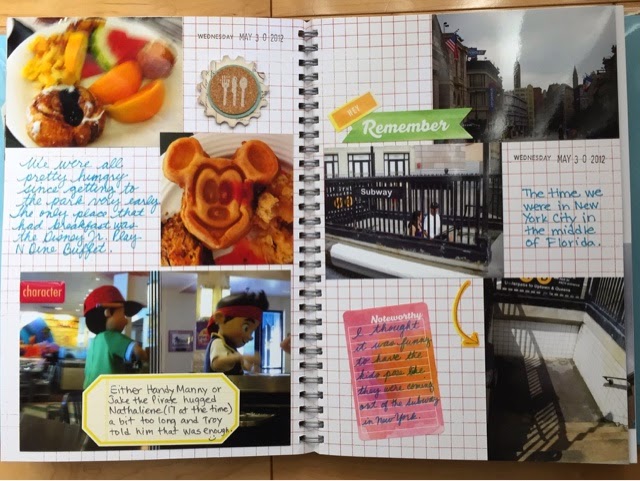 WEDNESDAY MAY 30 2012
We were all
pretty hungry
since getting to
the park very early.
The only place that
had breakfast was
the Disney Jr. Play
N Dine Buffet.
character
Either Handy Manny or
Jake the Pirate hugged
Nathaliene (17 at the time)
a bit too long and Troy
told him that was enough.
HEY,
Remember
Subway
WEDNESDAY MAY 30 2012
The time we
were in New
York City in
the middle
of Florida.
Noteworthy
I thought
it was funny
to have the
kids pose like
they were coming
out of the subway
in New York.
Uptown & Queens